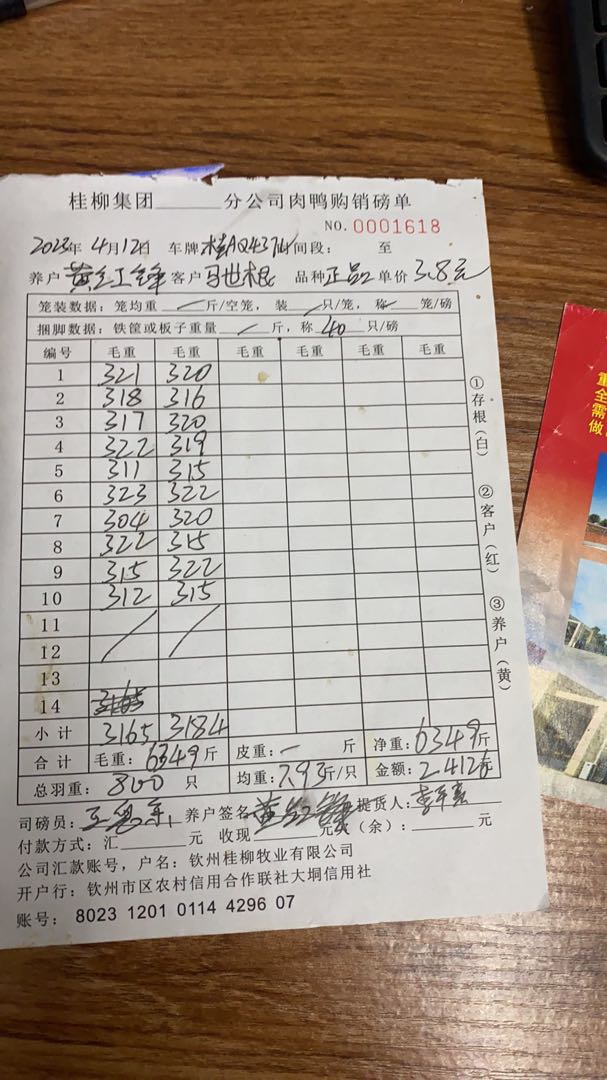 桂柳集团______分公司肉鸭购销磅单
NO.0001618
2023年4月12日 车牌桂AQ437 间段: 至
养户 黄 锋 客户 马世根 品种 正品2 单价 3.8元
笼装数据: 笼均重 — 斤/空笼, 装 — 只/笼, 称 — 笼/磅
捆脚数据: 铁筐或板子重量 — 斤, 称 40 只/磅
编号 毛重 毛重 毛重 毛重 毛重 毛重
1 321 320
2 318 316
3 317 320
4 322 319
5 311 315
6 323 322
7 304 320
8 322 315
9 315 322
10 312 315
11
12
13
14
小计 3165 3184
合计 毛重: 6349斤 皮重: — 斤 净重: 6349斤
总羽重: 800 只 均重: 7.93斤/只 金额: 2.412
司磅员: 养户签名 提货人:
付款方式: 汇______元 收现______元欠(余):______元
公司汇款账号, 户名: 钦州桂柳牧业有限公司
开户行: 钦州市区农村信用合作联社大垌信用社
账号: 8023 1201 0114 4296 07
①存根(白)
②客户(红)
③养户(黄)
重
全
需
做